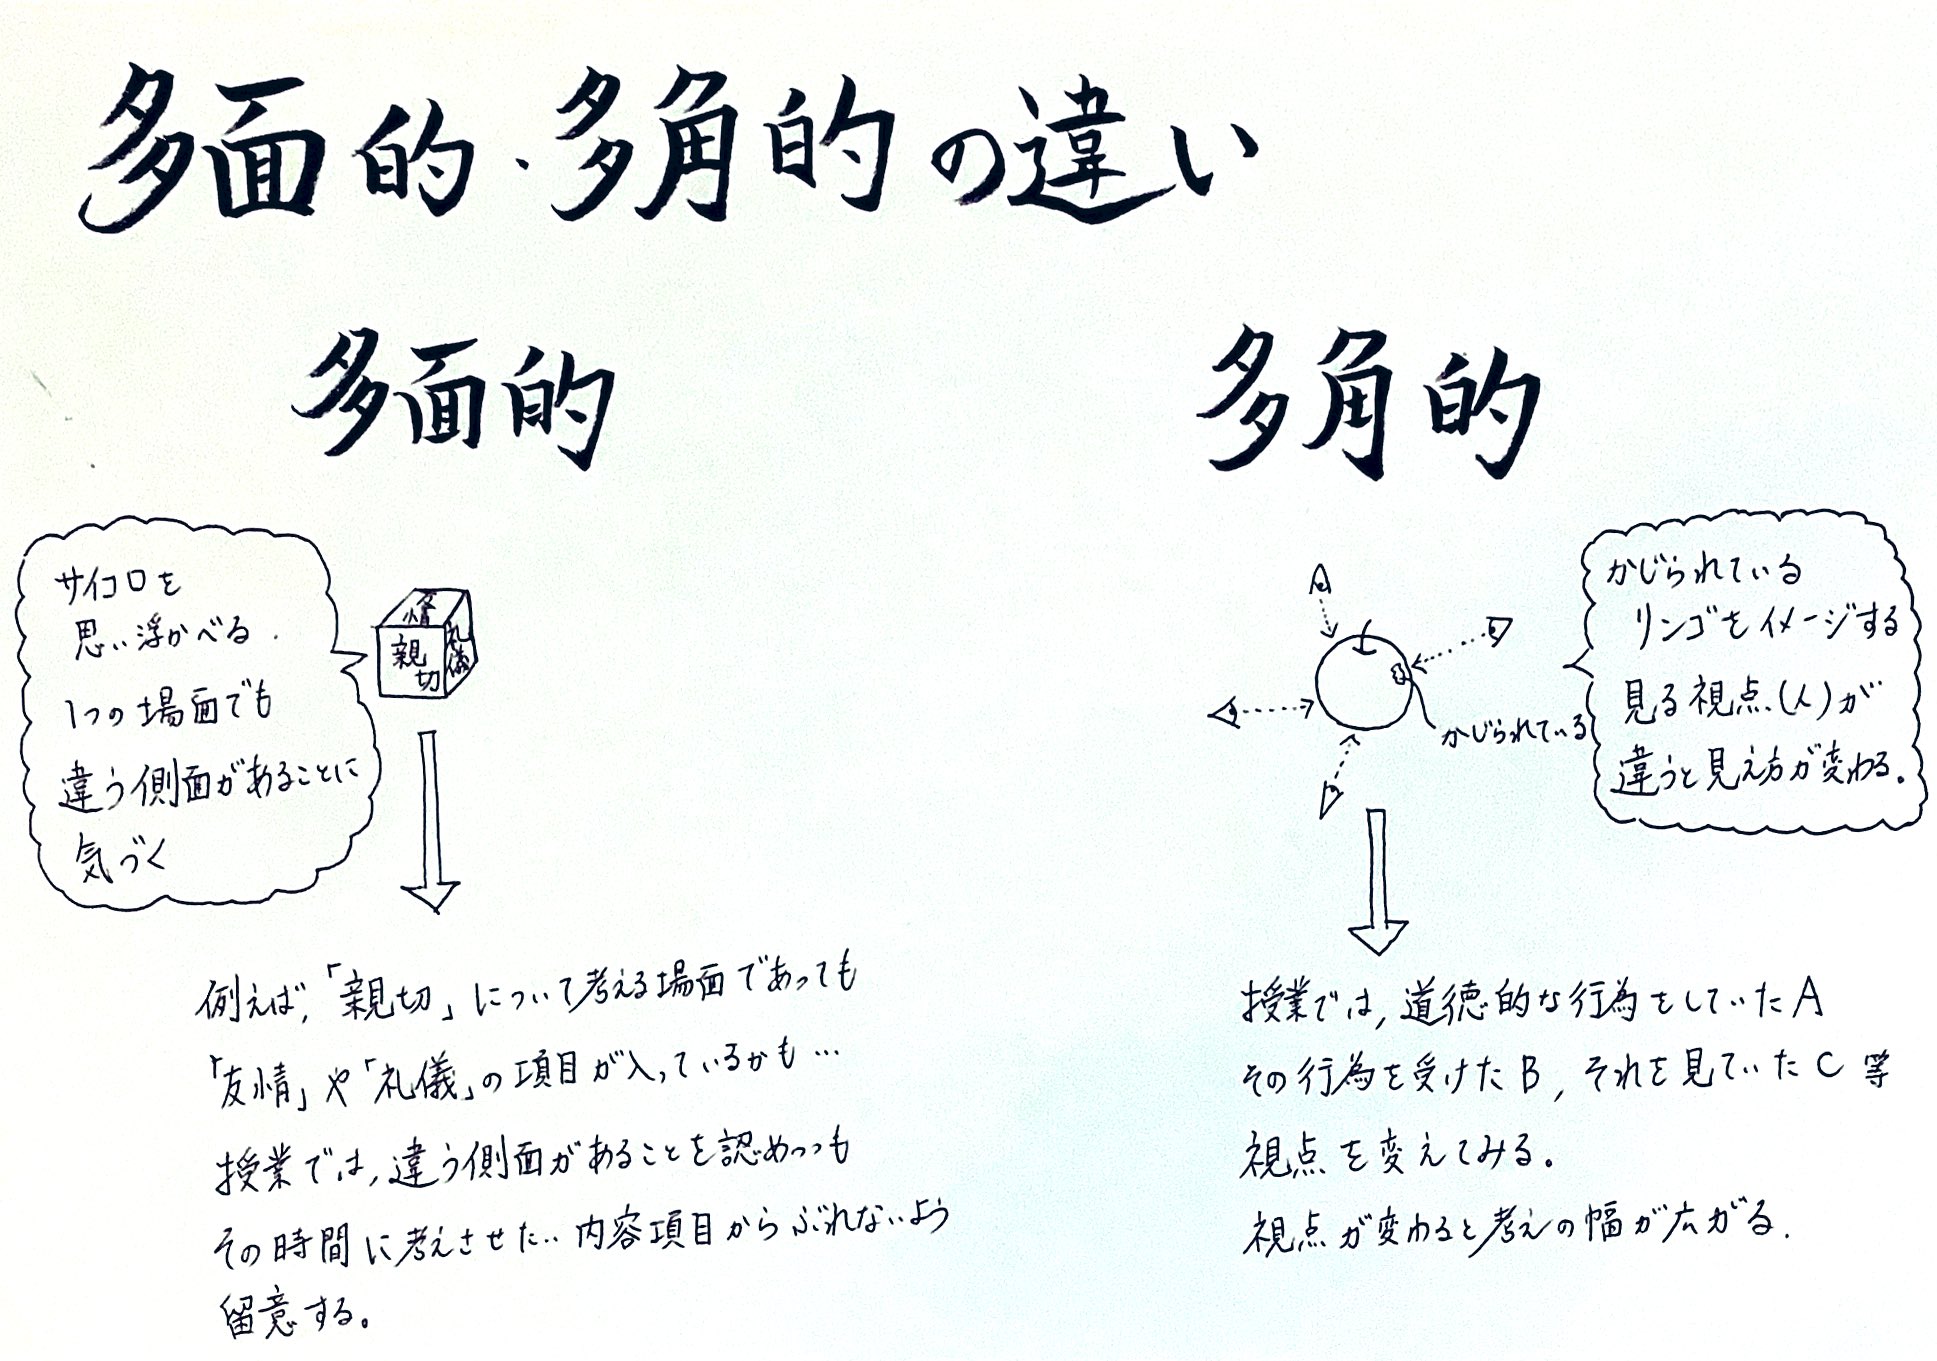 多面的・多角的の違い
多面的
サイコロを
思い浮かべる.
1つの場面でも
違う側面があることに
気づく
友情
親切
礼儀
例えば,「親切」について考える場面であっても
「友情」や「礼儀」の項目が入っているかも…
授業では,違う側面があることを認めつつも
その時間に考えさせたい内容項目からぶれないよう
留意する。
多角的
かじられている
リンゴをイメージする
見る視点(人)が
違うと見え方が変わる。
かじられている
授業では,道徳的な行為をしていたA
その行為を受けたB,それを見ていたC等
視点を変えてみる。
視点が変わると考えの幅が広がる.